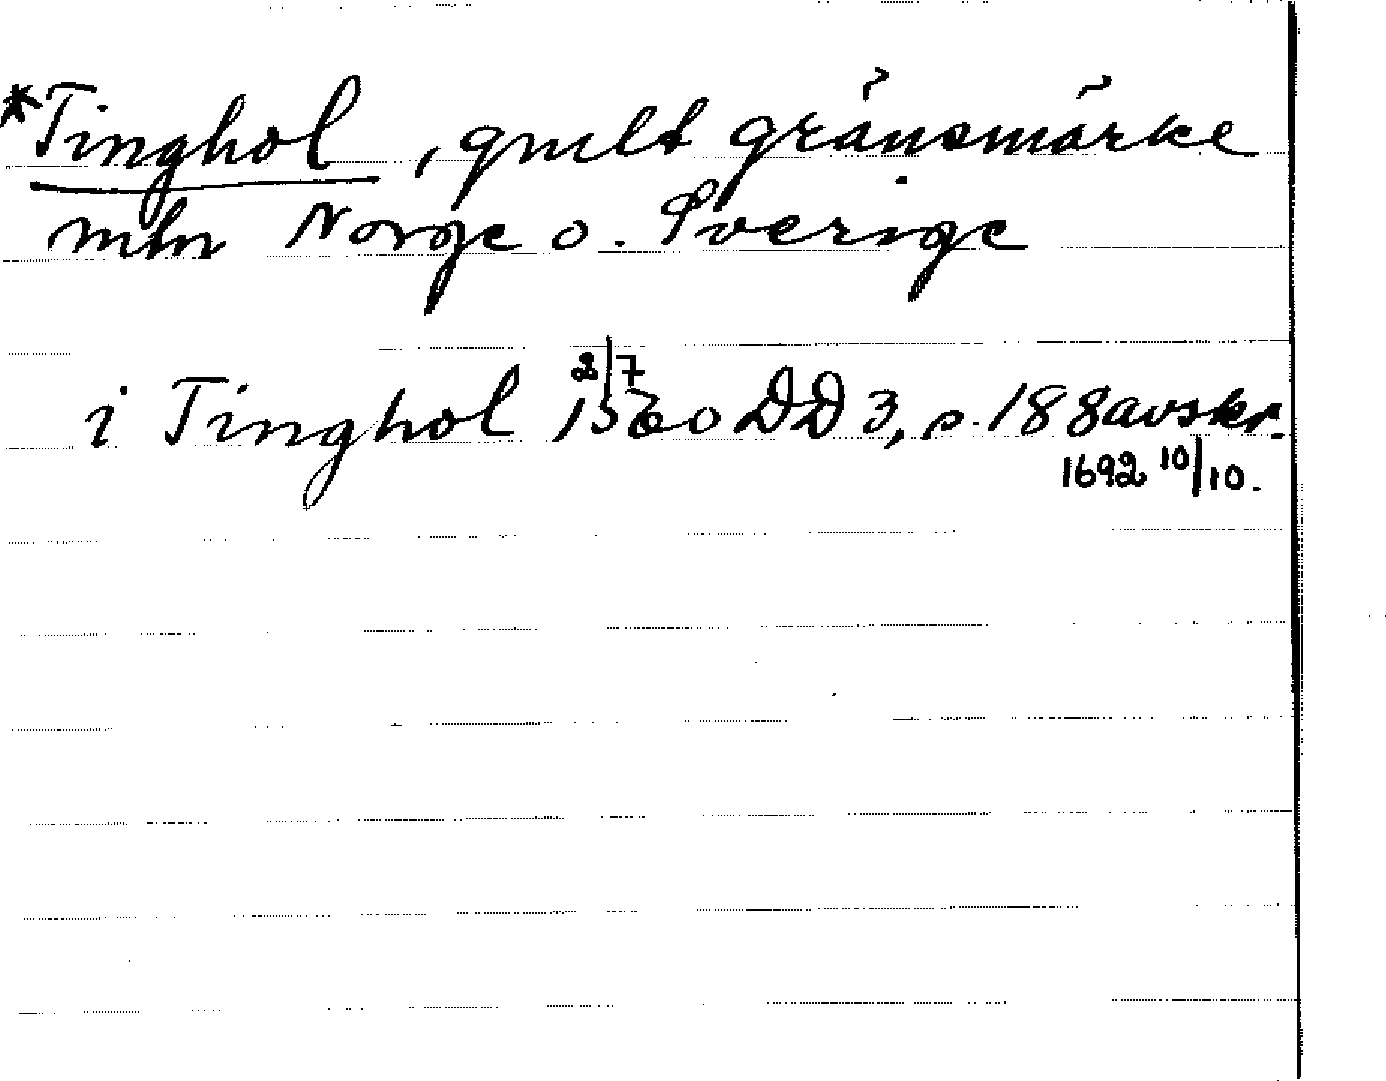 *Tinghol, gmlt gränsmärke
mln Norge o. Sverige
i Tinghol 2/7 1560 DD 3, s. 188 avskr.
1692 10/10.